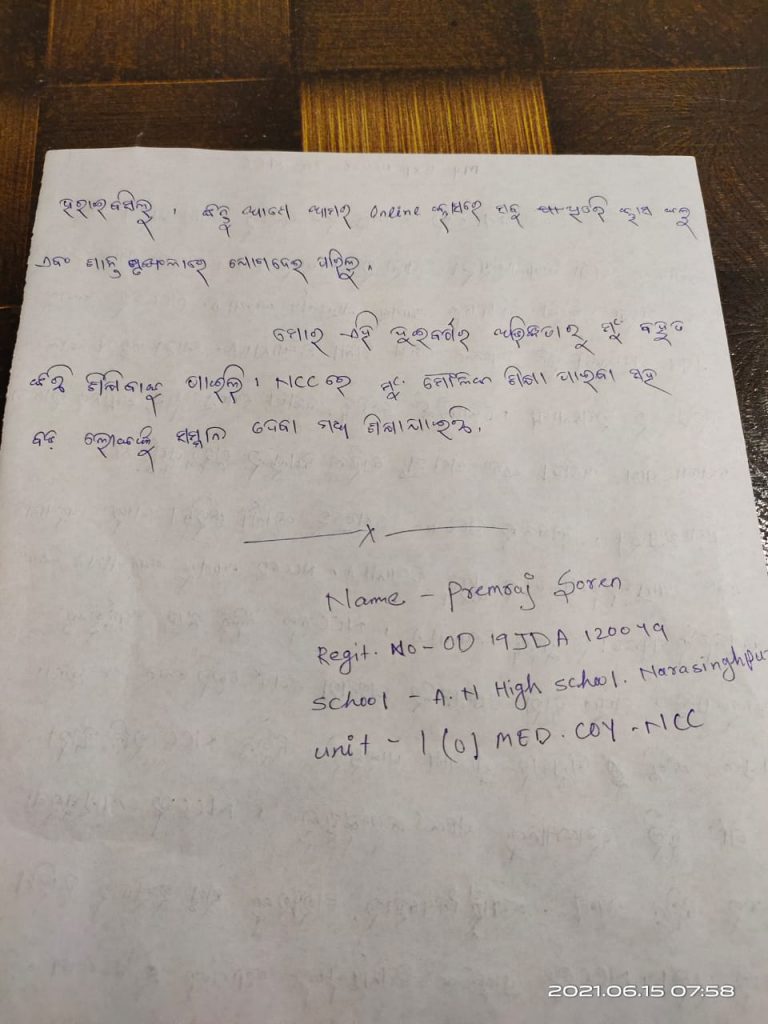 ହରାଇବସିଲୁ । କିନ୍ତୁ ଆମେ ଆମର Online କ୍ଲାସରେ ସବୁ କ୍ଲାସ କରୁ
ଏବଂ ଯୋଗଦେଇ ପାରିଲୁ ।
ମୋର ଏହି ଦୁଇବର୍ଷର ଅଭିଜ୍ଞତାରୁ ମୁଁ ବହୁତ
କିଛି ଶିଖିବାକୁ ପାଇଲି । NCC ରେ ମୁଁ ମୌଳିକ ଶିକ୍ଷା ପାଇବା ସହ
ବଡ଼ ଲୋକଙ୍କୁ ସମ୍ମାନ ଦେବା ମଧ୍ୟ ଶିଖାଯାଇଛି ।
x
Name - Premraj Soren
Regit. No - OD 19JDA 120049
school - A.N High school. Narasinghpur
unit - 1 (O) MED. COY - NCC
2021.06.15 07:58